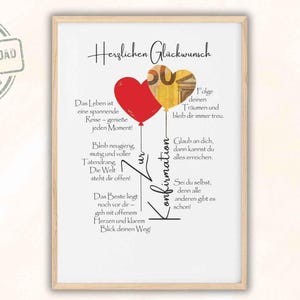 OAD
Herzlichen Glückwunsch
50
Das Leben ist
eine spannende
Reise – genieße
jeden Moment!
Folge
deinen
Träumen und
bleib dir immer treu.
Bleib neugierig,
mutig und voller
Tatendrang.
Die Welt
steht dir offen!
Zur
Konfirmation
Glaub an dich,
dann kannst du
alles erreichen.
Das Beste liegt
noch vor dir –
geh mit offenem
Herzen und klarem
Blick deinen Weg!
Sei du selbst,
denn alle
anderen gibt es
schon!